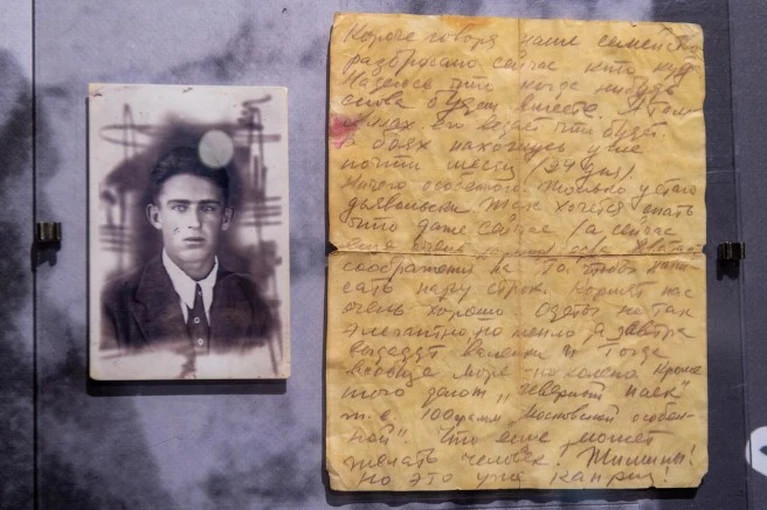 Короче говоря наше семейство
разбросано сейчас кто куда
Надеюсь что когда нибудь
снова будем вместе. А там
аллах его ведает что будет.
В боях нахожусь уже
почти месяц (24 дня).
Ничего особенного. Только устаю
дьявольски. Так хочется спать
что даже сейчас (а сейчас
еще очень хватает
соображения на то, чтобы напи-
сать пару строк. Кормят нас
очень хорошо Одеты не так
элегантно, но тепло а завтра
выдадут валенки и тогда
вообще море по колено. Кроме
того дают „
т. е. 100 грамм „Московской особен-
ной". Что еще может
желать человек!
Но это уже каприз!